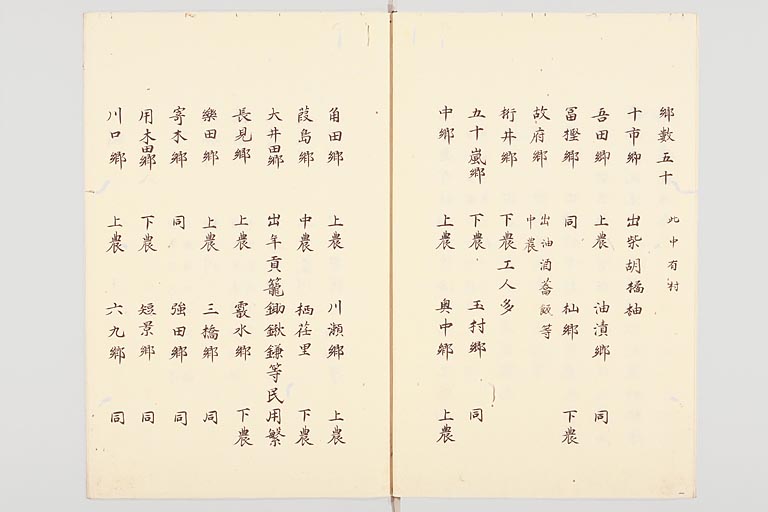 鄉數五十 此中有村
十市鄉 出柴胡橘柚
吾田鄉 上農 油漬鄉 同
冨樫鄉 同 杣鄉 下農
故府鄉 中農 出油酒蕃椒等
桁井鄉 下農工人多
五十嵐鄉 下農 玉村鄉 同
中鄉 上農 奥中鄉 上農
角田鄉 上農 川瀬鄉 上農
葭島鄉 中農 栖荏里 下農
大井田鄉 出年貢籠鋤鍬鎌等民用繁
長見鄉 上農 霰水鄉 下農
樂田鄉 上農 三橋鄉 同
寄木鄉 同 強田鄉 同
用木田鄉 下農 短景鄉 同
川口鄉 上農 六九鄉 同